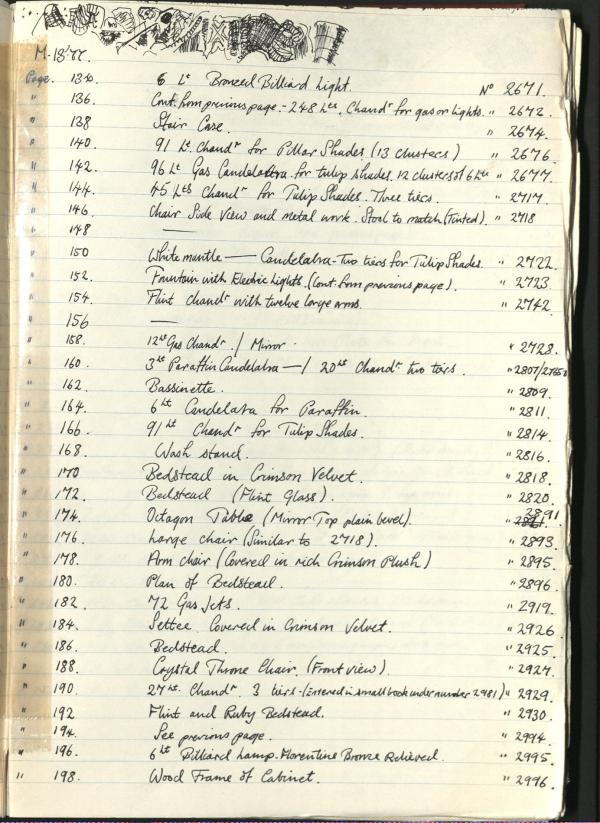 M-18'77.
Page. 134. 6 Lt Bronzed Billiard Light. No 2671.
" 136. Cont. from previous page.- 248 Lts, Chandr for gas or lights. " 2672.
" 138 Stair Case. " 2674.
" 140. 91 Lt Chandr for Pillar Shades (13 clusters) " 2676.
" 142. 96 Lt Gas Candelabra for tulip shades. 12 clusters of 6 Lts " 2677.
" 144. 45 Lts Chandr for Tulip Shades. Three tiers. " 2717.
" 146. Chair Side View and metal work. Stool to match (Tinted). " 2718
" 148 —
" 150 White mantle — Candelabra - Two tiers for Tulip Shades. " 2722.
" 152. Fountain with Electric Lights. (Cont. from previous page). " 2723
" 154. Flint chandr with twelve large arms. " 2742
" 156 —
" 158. 12 Lt Gas Chandr. / Mirror. " 2728.
" 160. 3 Lt Paraffin Candelabra — / 20 Lt Chandr two tiers. " 2807/
" 162. Bassinette. " 2809.
" 164. 6 Lt Candelabra for Paraffin. " 2811.
" 166. 91 Lt Chandr for Tulip Shades. " 2814.
" 168. Wash stand. " 2816.
" 170 Bedstead in Crimson Velvet. " 2818.
" 172. Bedstead (Flint Glass). " 2820.
" 174. Octagon Table (Mirror Top plain bevel). " 2891
" 176. Large chair (Similar to 2718). " 2893.
" 178. Arm chair (Covered in rich Crimson Plush) " 2895.
" 180. Plan of Bedstead. " 2896
" 182. 72 Gas Jets. " 2919.
" 184. Settee. Covered in Crimson Velvet. " 2926
" 186. Bedstead. " 2925
" 188. Crystal Throne Chair. (Front view). " 2927
" 190. 27 Lt. Chandr. 3 tiers - (Entered in small book under number 2981) " 2929.
" 192 Flint and Ruby Bedstead. " 2930
" 194. See previous page. " 2994
" 196. 6 Lt Billiard Lamp. Florentine Bronze Relieved. " 2995.
" 198. Wood Frame of Cabinet. " 2996.